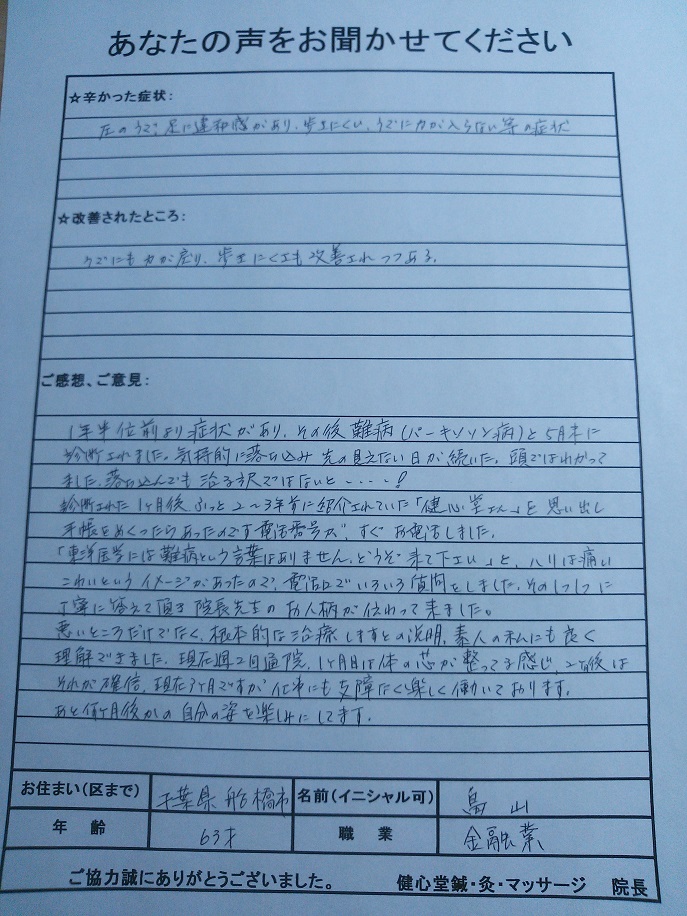 あなたの声をお聞かせてください
☆辛かった症状：
左のうで、足に違和感があり、歩きにくい、うでに力が入らない等の症状
☆改善されたところ：
うでにも力が戻り、歩きにくさも改善されつつある。
ご感想、ご意見：
1年半位前より症状があり、その後難病(パーキンソン病)と5月末に
診断されました。気持的に落ち込み先の見えない日が続いた。頭ではわかって
ました。落ち込んでも治る訳ではないと・・・・!
診断された1ヶ月後、ふっと2〜3年前に紹介されていた「健心堂さん」を思い出し
手帳をめくったらあったのです電話番号が、すぐお電話しました。
「東洋医学には難病という言葉はありません、どうぞ来て下さい」と、ハリは痛い
こわいというイメージがあったので、電話口でいろいろ質問をしました。その1つ1つに
丁寧に答えて頂き院長先生のお人柄が伝わって来ました。
悪いところだけでなく、根本的な治療しますとの説明、素人の私にも良く
理解できました。現在週2日通院、1ヶ月目は体の芯が整ってる感じ、2ヶ月後は
それが確信、現在3ヶ月ですが仕事にも支障なく楽しく働いております。
あと何ヶ月後かの自分の姿を楽しみにしてます。
お住まい(区まで) 千葉県船橋市 名前(イニシャル可) 鳥山
年齢 63才 職業 金融業
ご協力誠にありがとうございました。 健心堂鍼・灸・マッサージ 院長